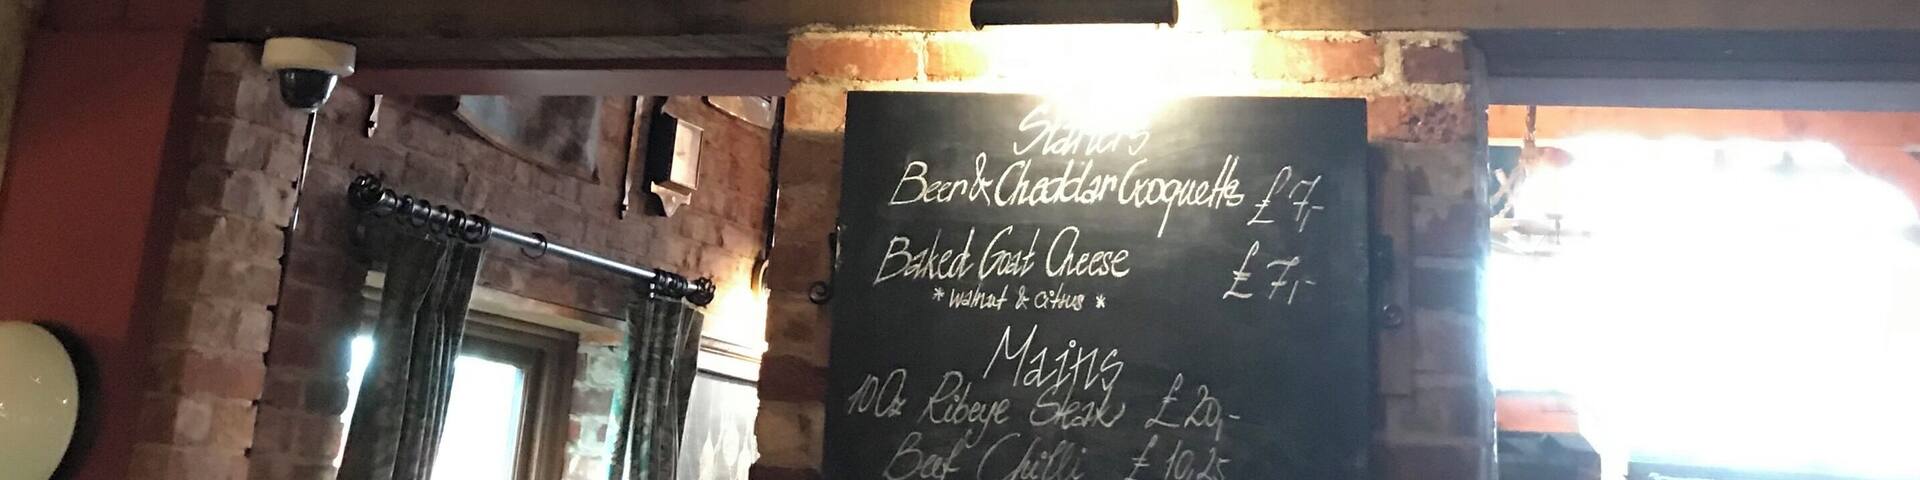 Starters
Beer & Cheddar Croquetts £7,-
Baked Goat Cheese £7,-
* walnut & citrus *
Mains
10Oz Ribeye Steak £20,-
Beef Chilli £10,25